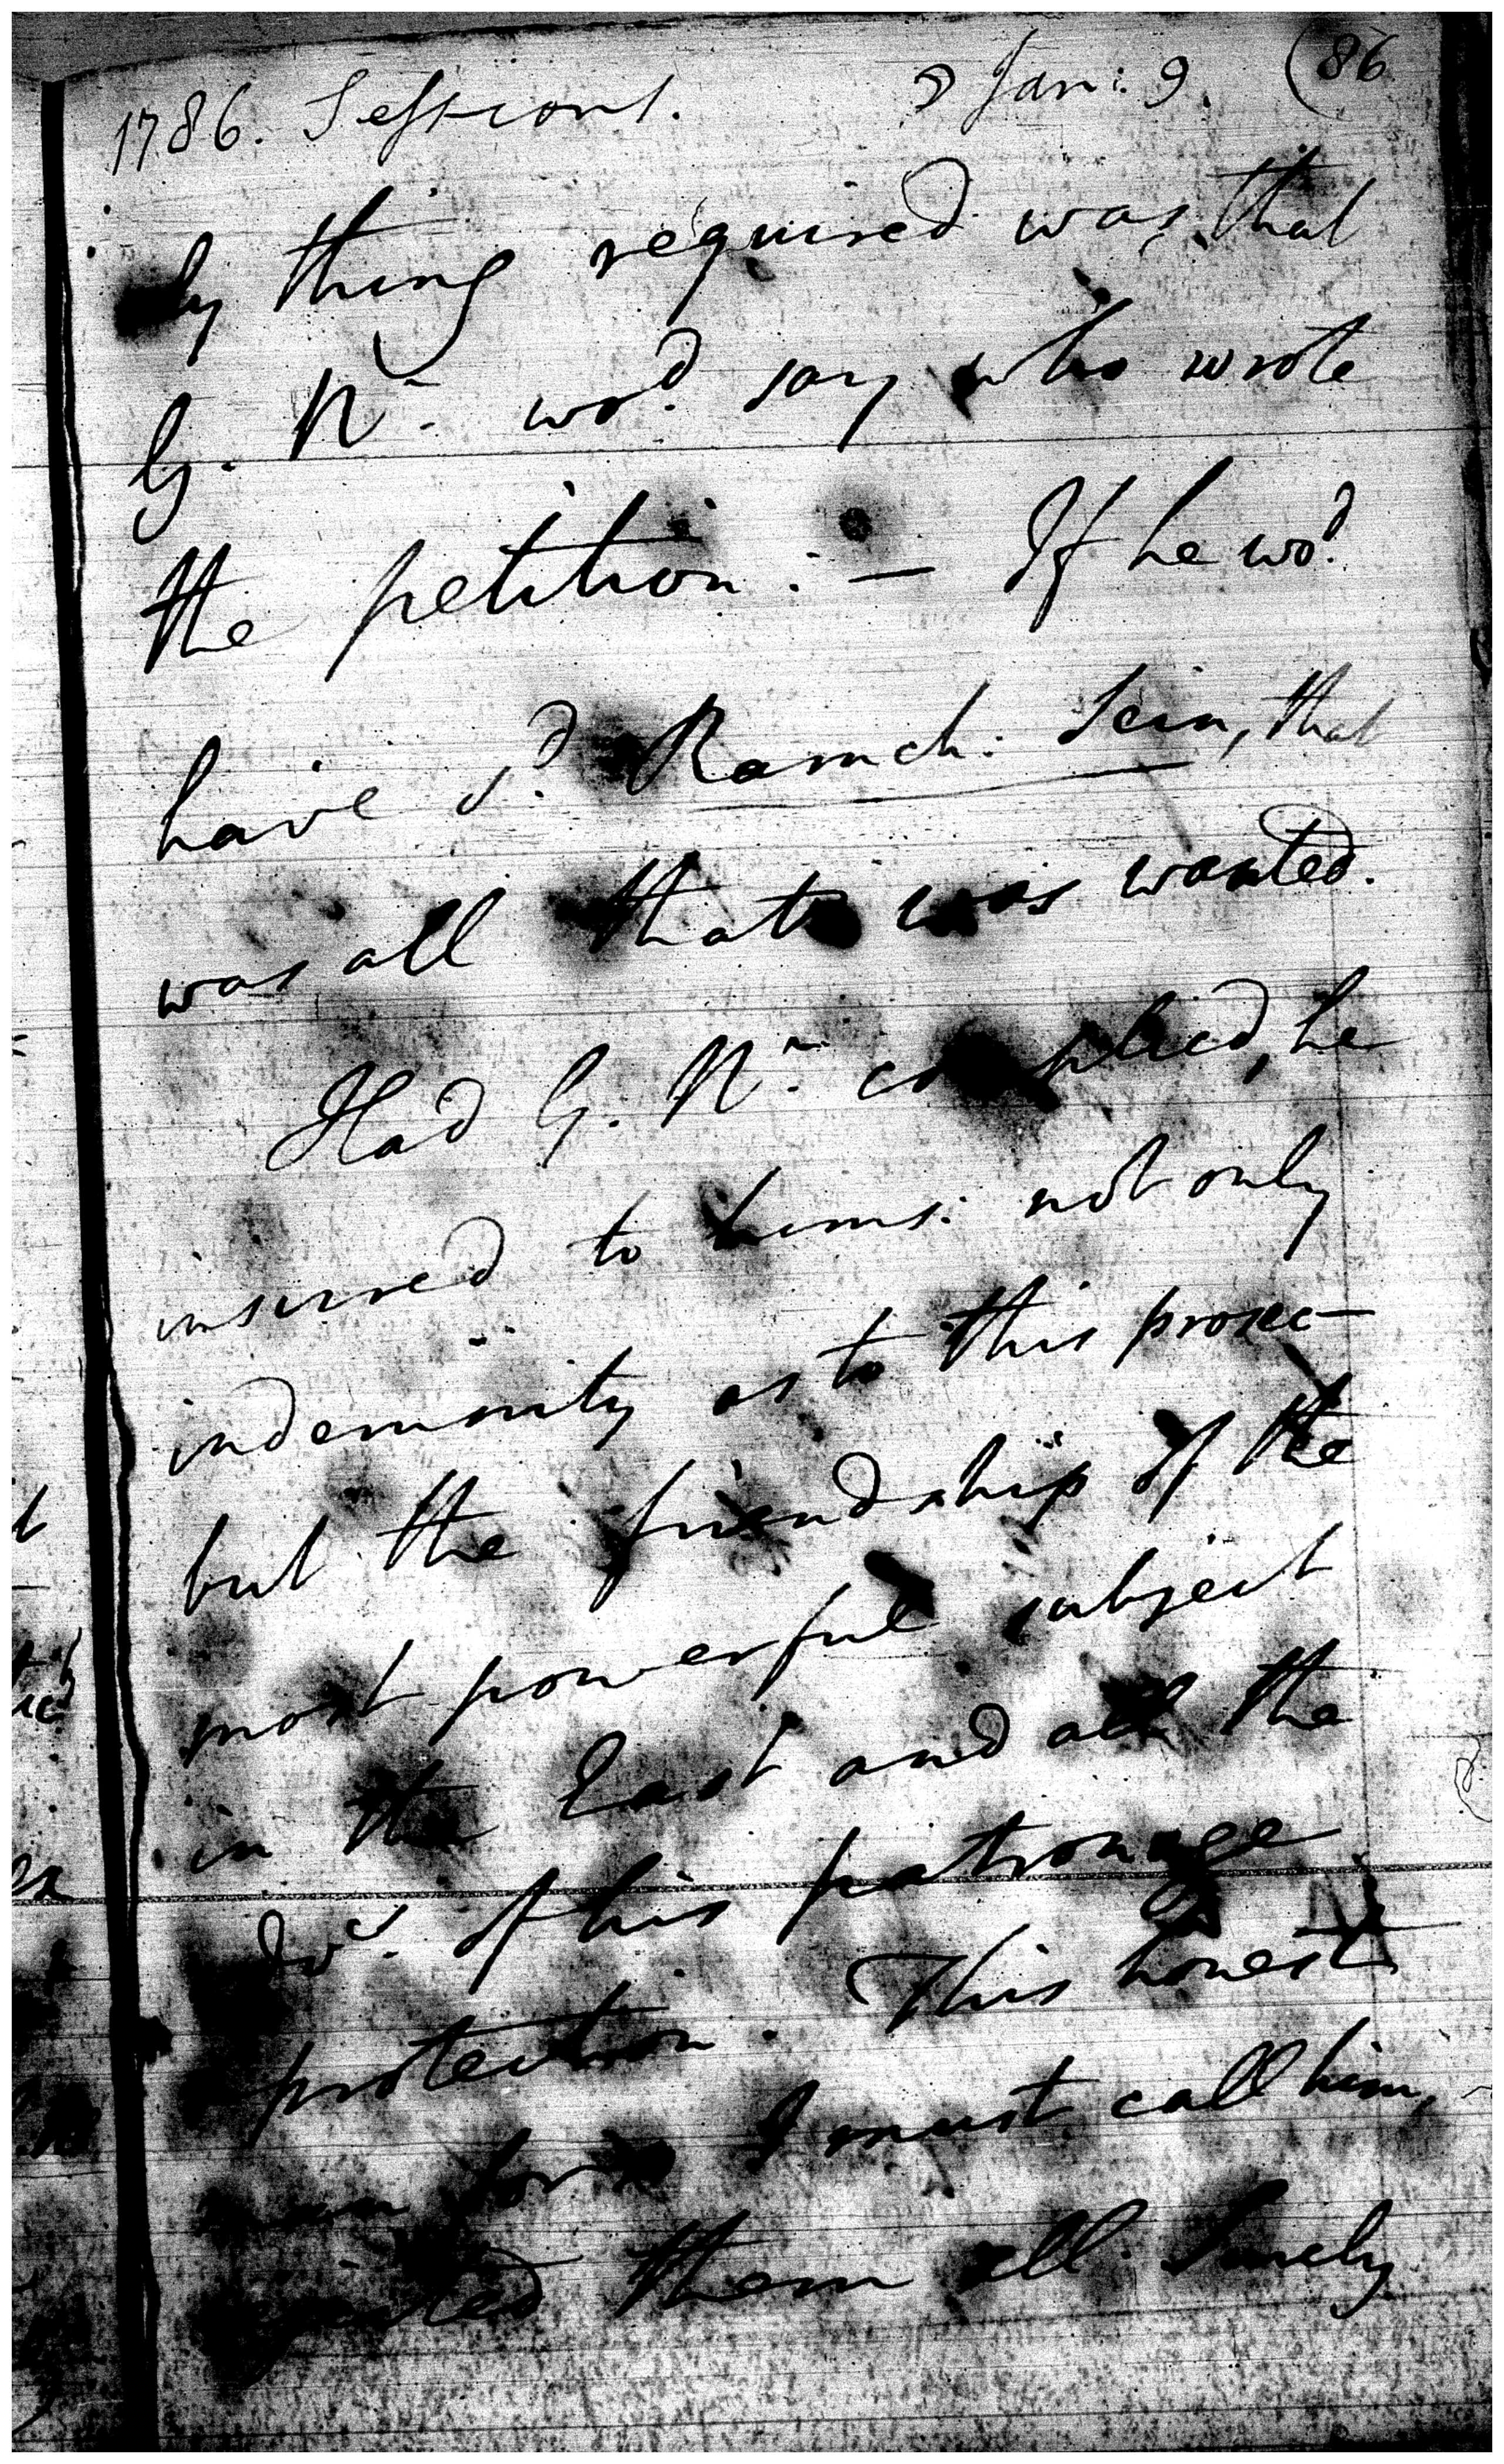 1786. Sessions. Jan: 9. (86
ly thing required was, that
G. N. wo.d say who wrote
the petition. — If he wo.d
have s.d Ramch. Sein, that
was all that was wanted.
Had G. N. complied, he
insured to hims. not only
indemnity as to this prosec-
but the friendship of the
most powerful subject
in the East and all the
of his patronage
protection. This honest
man for so I must call him,
rejected them all. Surely